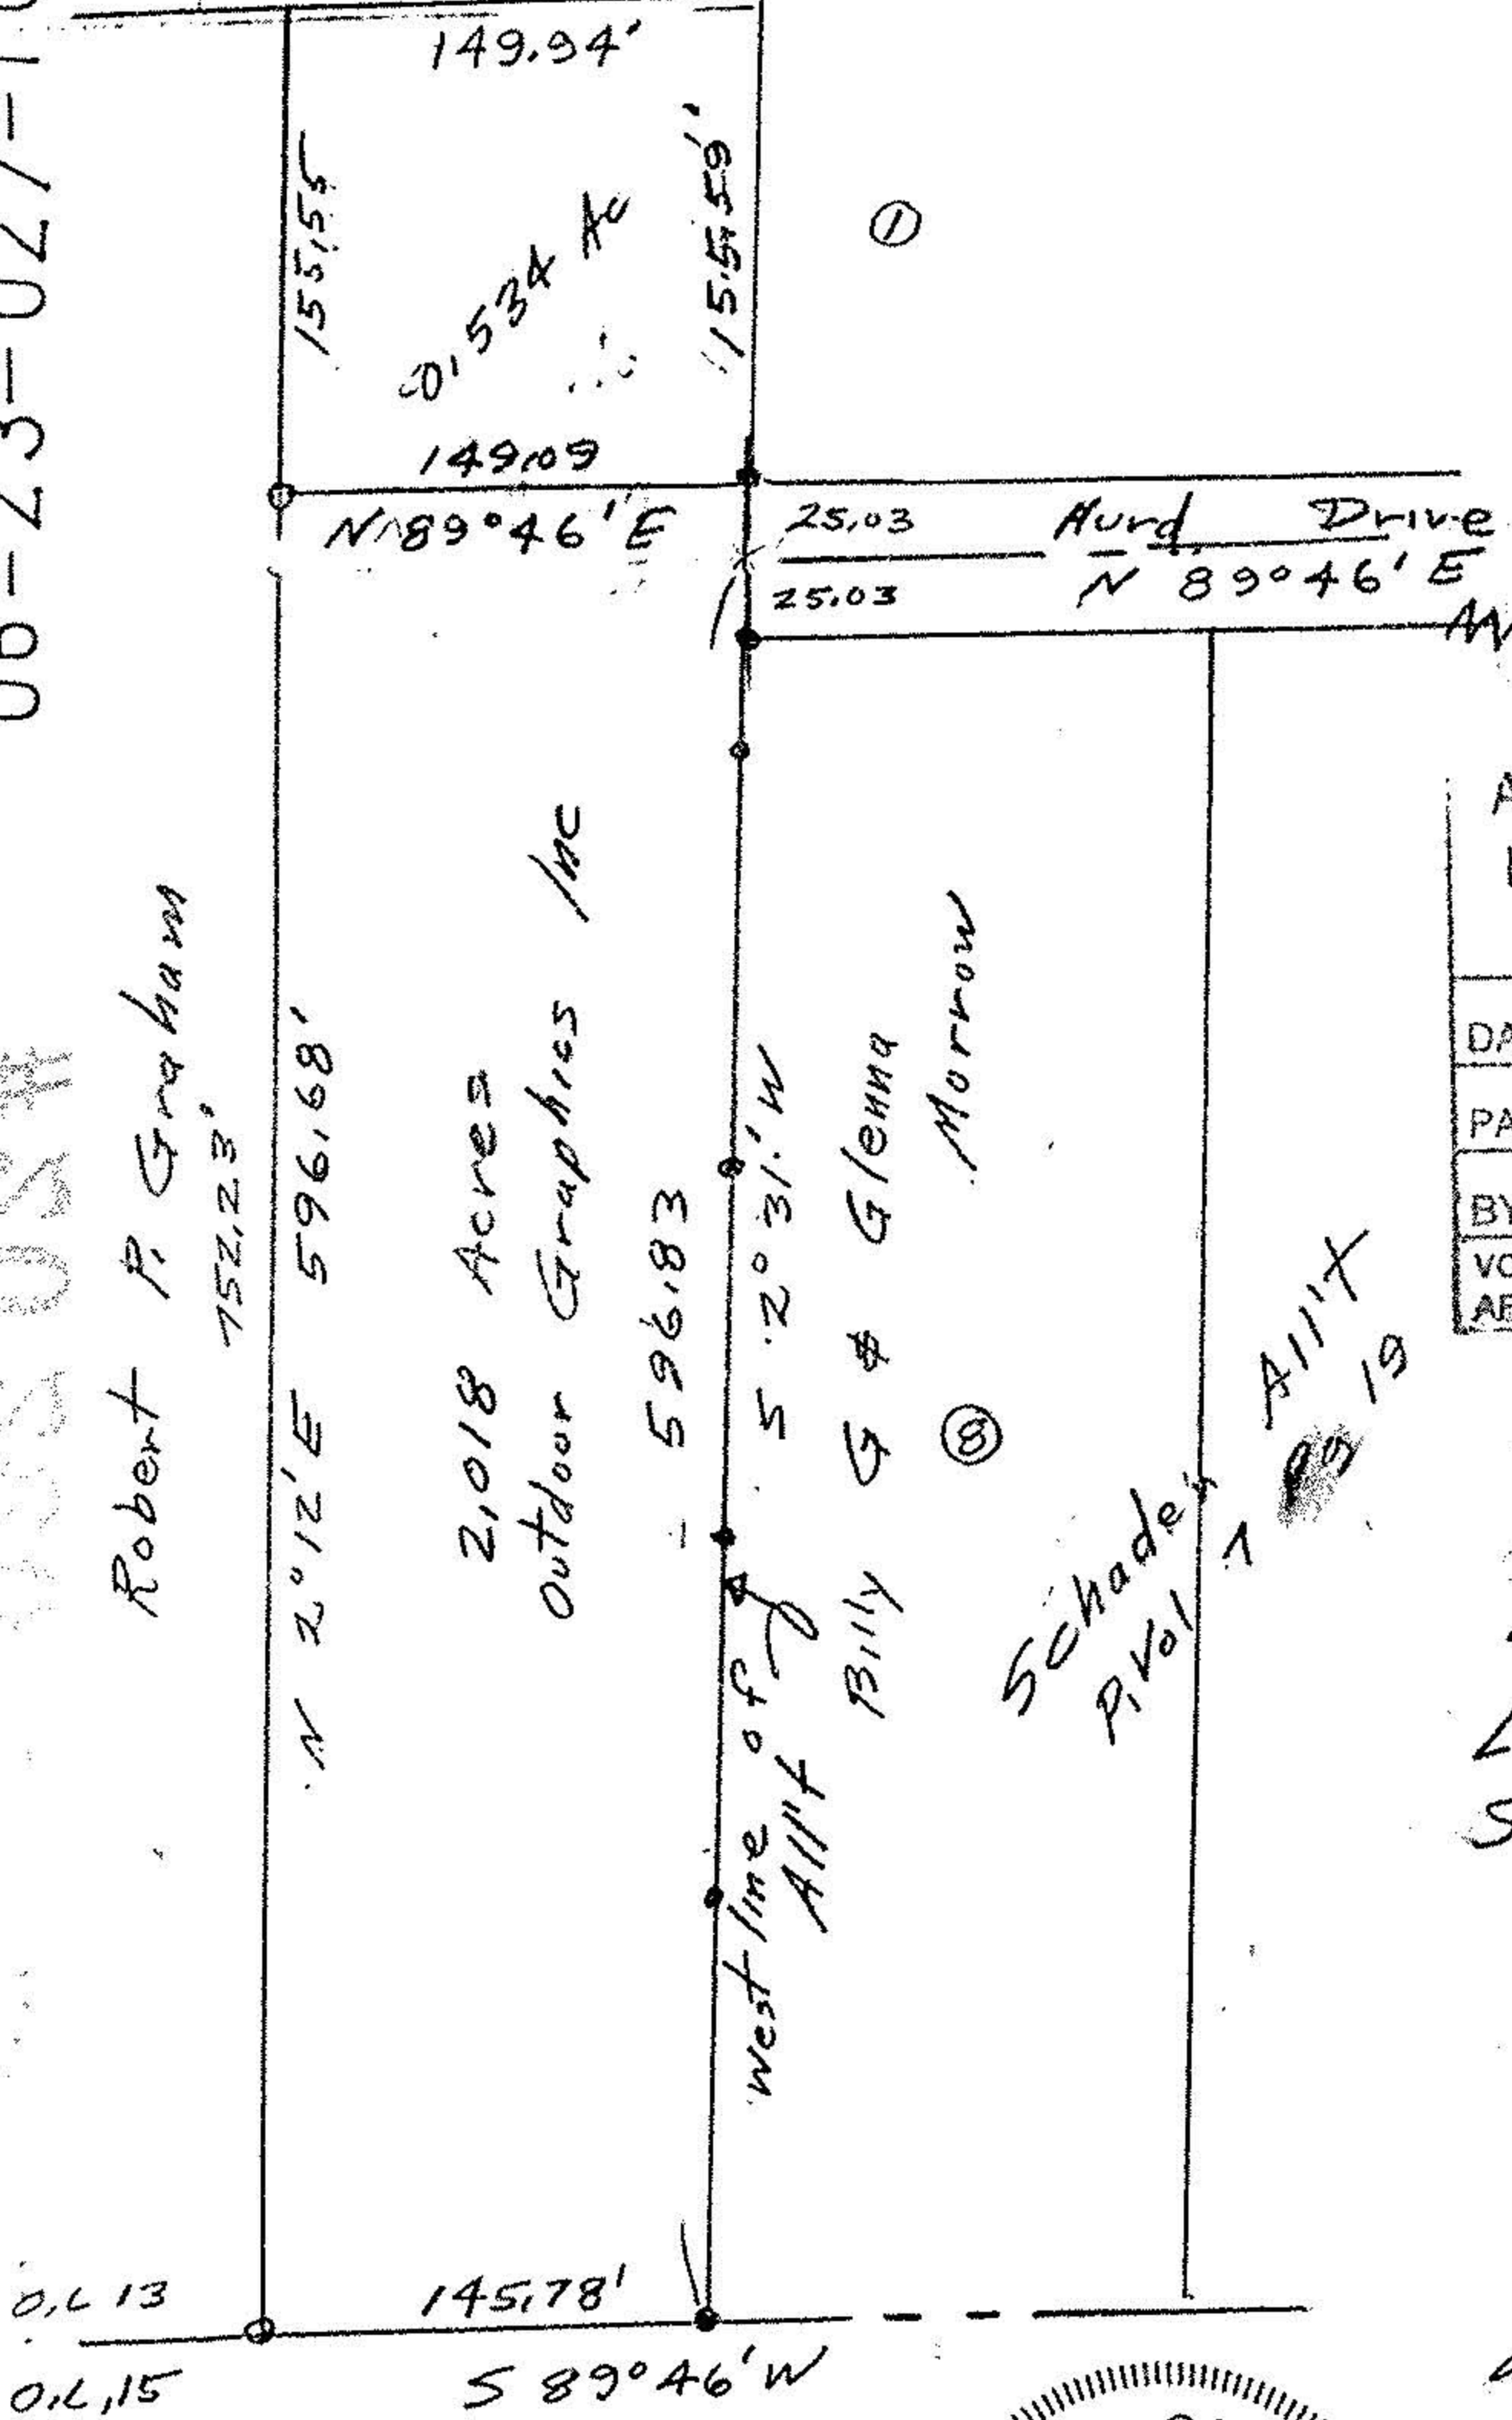 149.94'
155.55
0.534 Ac
155.59'
①
149.09
N 89°46' E
25.03
Hurd Drive
25.03
N 89°46' E
Robert P. Graham
752.23'
N 2°12' E 596.68'
2.018 Acres
Outdoor Graphics Inc
596.83
S 2°31' W
Billy G & Glenna
Morrow
⑧
West line of
All't
Schade's All't
P. Vol 7 Pg 19
DA
PA
BY
VO
O.L 13
145.78'
O.L. 15
S 89°46' W